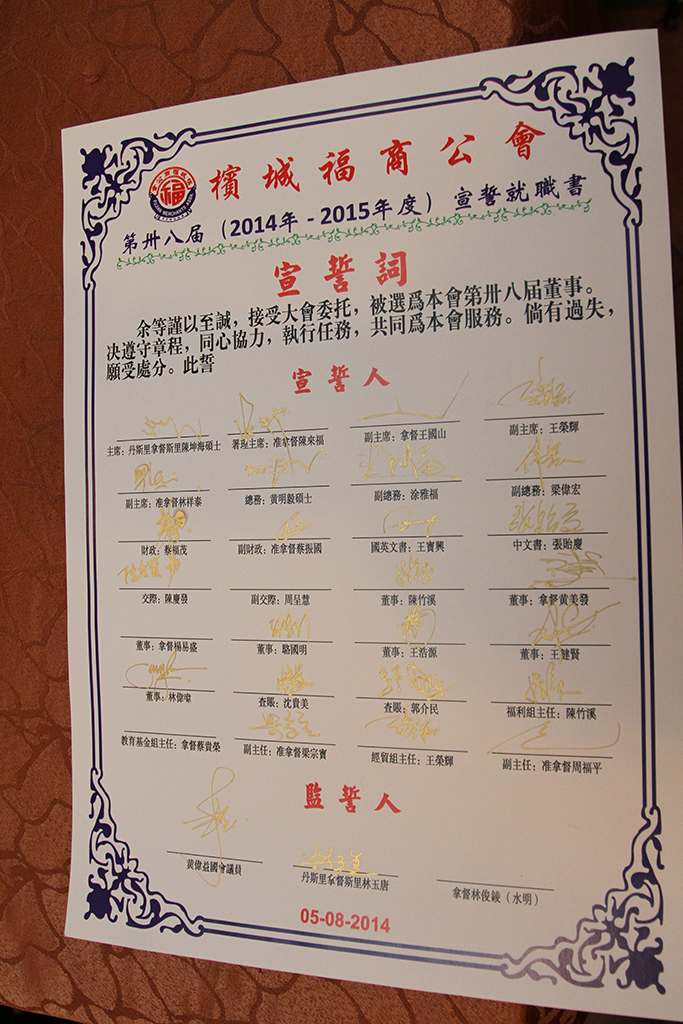 檳城福商公會
第卅八届（2014年 - 2015年度）宣誓就職書
宣誓詞
余等謹以至誠，接受大會委托，被選爲本會第卅八届董事。
决遵守章程，同心協力，執行任務，共同爲本會服務。倘有過失，
願受處分。此誓
宣誓人
主席：丹斯里拿督斯里陳坤海碩士 署理主席：准拿督陳來福 副主席：拿督王國山 副主席：王榮輝
副主席：准拿督林祥泰 總務：黄明毅碩士 副總務：涂雅福 副總務：梁偉宏
財政：蔡福茂 副財政：准拿督蔡振國 國英文書：王寶興 中文書：張貽慶
交際：陳慶發 副交際：周呈慧 董事：陳竹溪 董事：拿督黄美發
董事：拿督楊易盛 董事：駱國明 董事：王浩源 董事：王健賢
董事：林偉嶂 查賬：沈貴美 查賬：郭介民 福利組主任：陳竹溪
教育基金組主任：拿督蔡貴榮 副主任：准拿督梁宗寶 經貿組主任：王榮輝 副主任：准拿督周福平
監誓人
黄偉益國會議員 丹斯里拿督斯里林玉唐 拿督林俊錂（水明）
05-08-2014